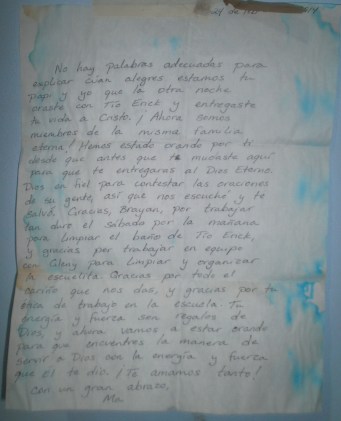 No hay palabras adecuadas para
explicar cuan alegres estamos tu
papi y yo que la otra noche
oraste con Tío Erick y entregaste
tu vida a Cristo. ¡Ahora somos
miembros de la misma familia
eterna! Hemos estado orando por ti
desde que antes que te mudaste aquí
para que te entregaras al Dios Eterno.
Dios en fiel para contestar las oraciones
de su gente, así que nos escuchó y te
salvó. Gracias, Brayan, por trabajar
tan duro el sábado por la mañana
para limpiar el baño de Tío Erick,
y gracias por trabajar en equipo
con para limpiar y organizar
la escuelita. Gracias por todo el
cariño que nos das, y gracias por tu
ética de trabajo en la escuela. Tu
energía y fuerza son regalos de
Dios, y ahora vamos a estar orando
para que encuentres la manera de
servir a Dios con la energía y fuerza
que él te dio. ¡Te amamos tanto!
Con un gran abrazo,
Ma